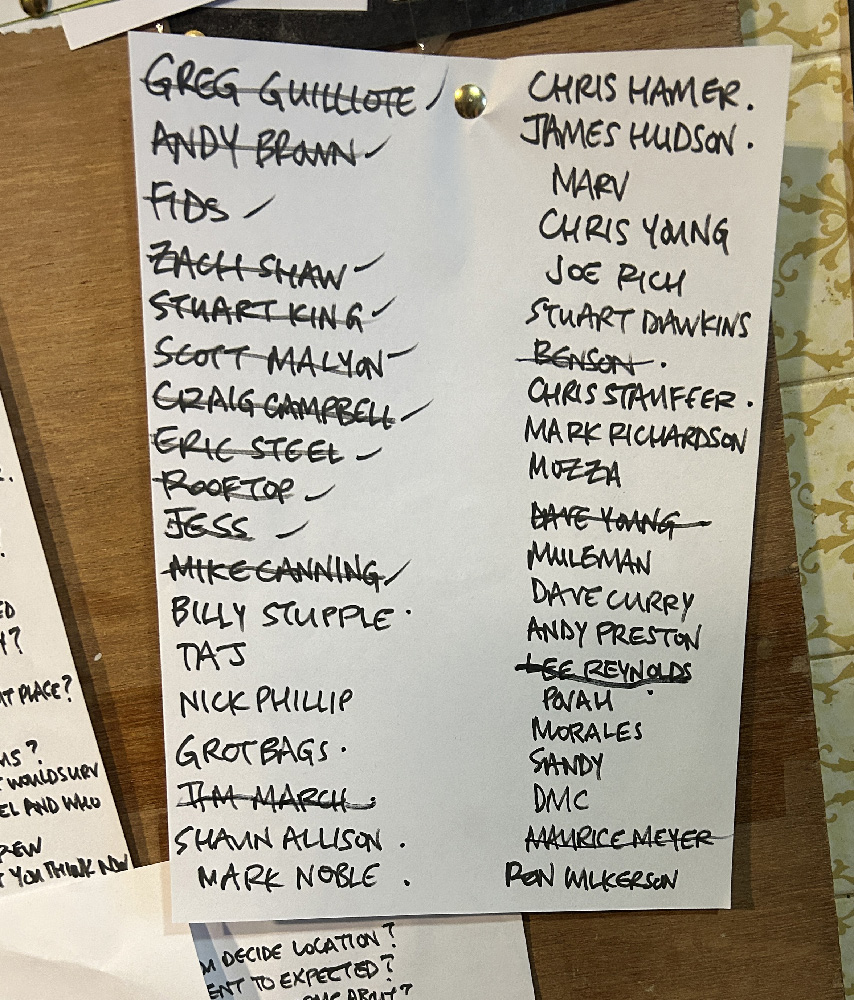 GREG GUILLIOTE ✓
ANDY BROWN ✓
FIDS ✓
ZACH SHAW ✓
STUART KING ✓
SCOTT MALYON ✓
CRAIG CAMPBELL ✓
ERIC STEEL ✓
ROOFTOP ✓
JESS ✓
MIKE CANNING ✓
BILLY STUPPLE .
TAJ
NICK PHILLIP
GROTBAGS .
JIM MARCH .
SHAUN ALLISON .
MARK NOBLE .
CHRIS HAMER .
JAMES HUDSON .
MARV
CHRIS YOUNG
JOE RICH
STUART DAWKINS
BENSON .
CHRIS STAUFFER .
MARK RICHARDSON
MUZZA
DAVE YOUNG
MULEMAN
DAVE CURRY
ANDY PRESTON
LEE REYNOLDS
MORALES
SANDY
DMC
MAURICE MEYER
RON WILKERSON
PLACE?
WOULD SURV
EL AND WHO
YOU THINK NOW
DECIDE LOCATION?
ENT TO EXPECTED?
ABOUT?